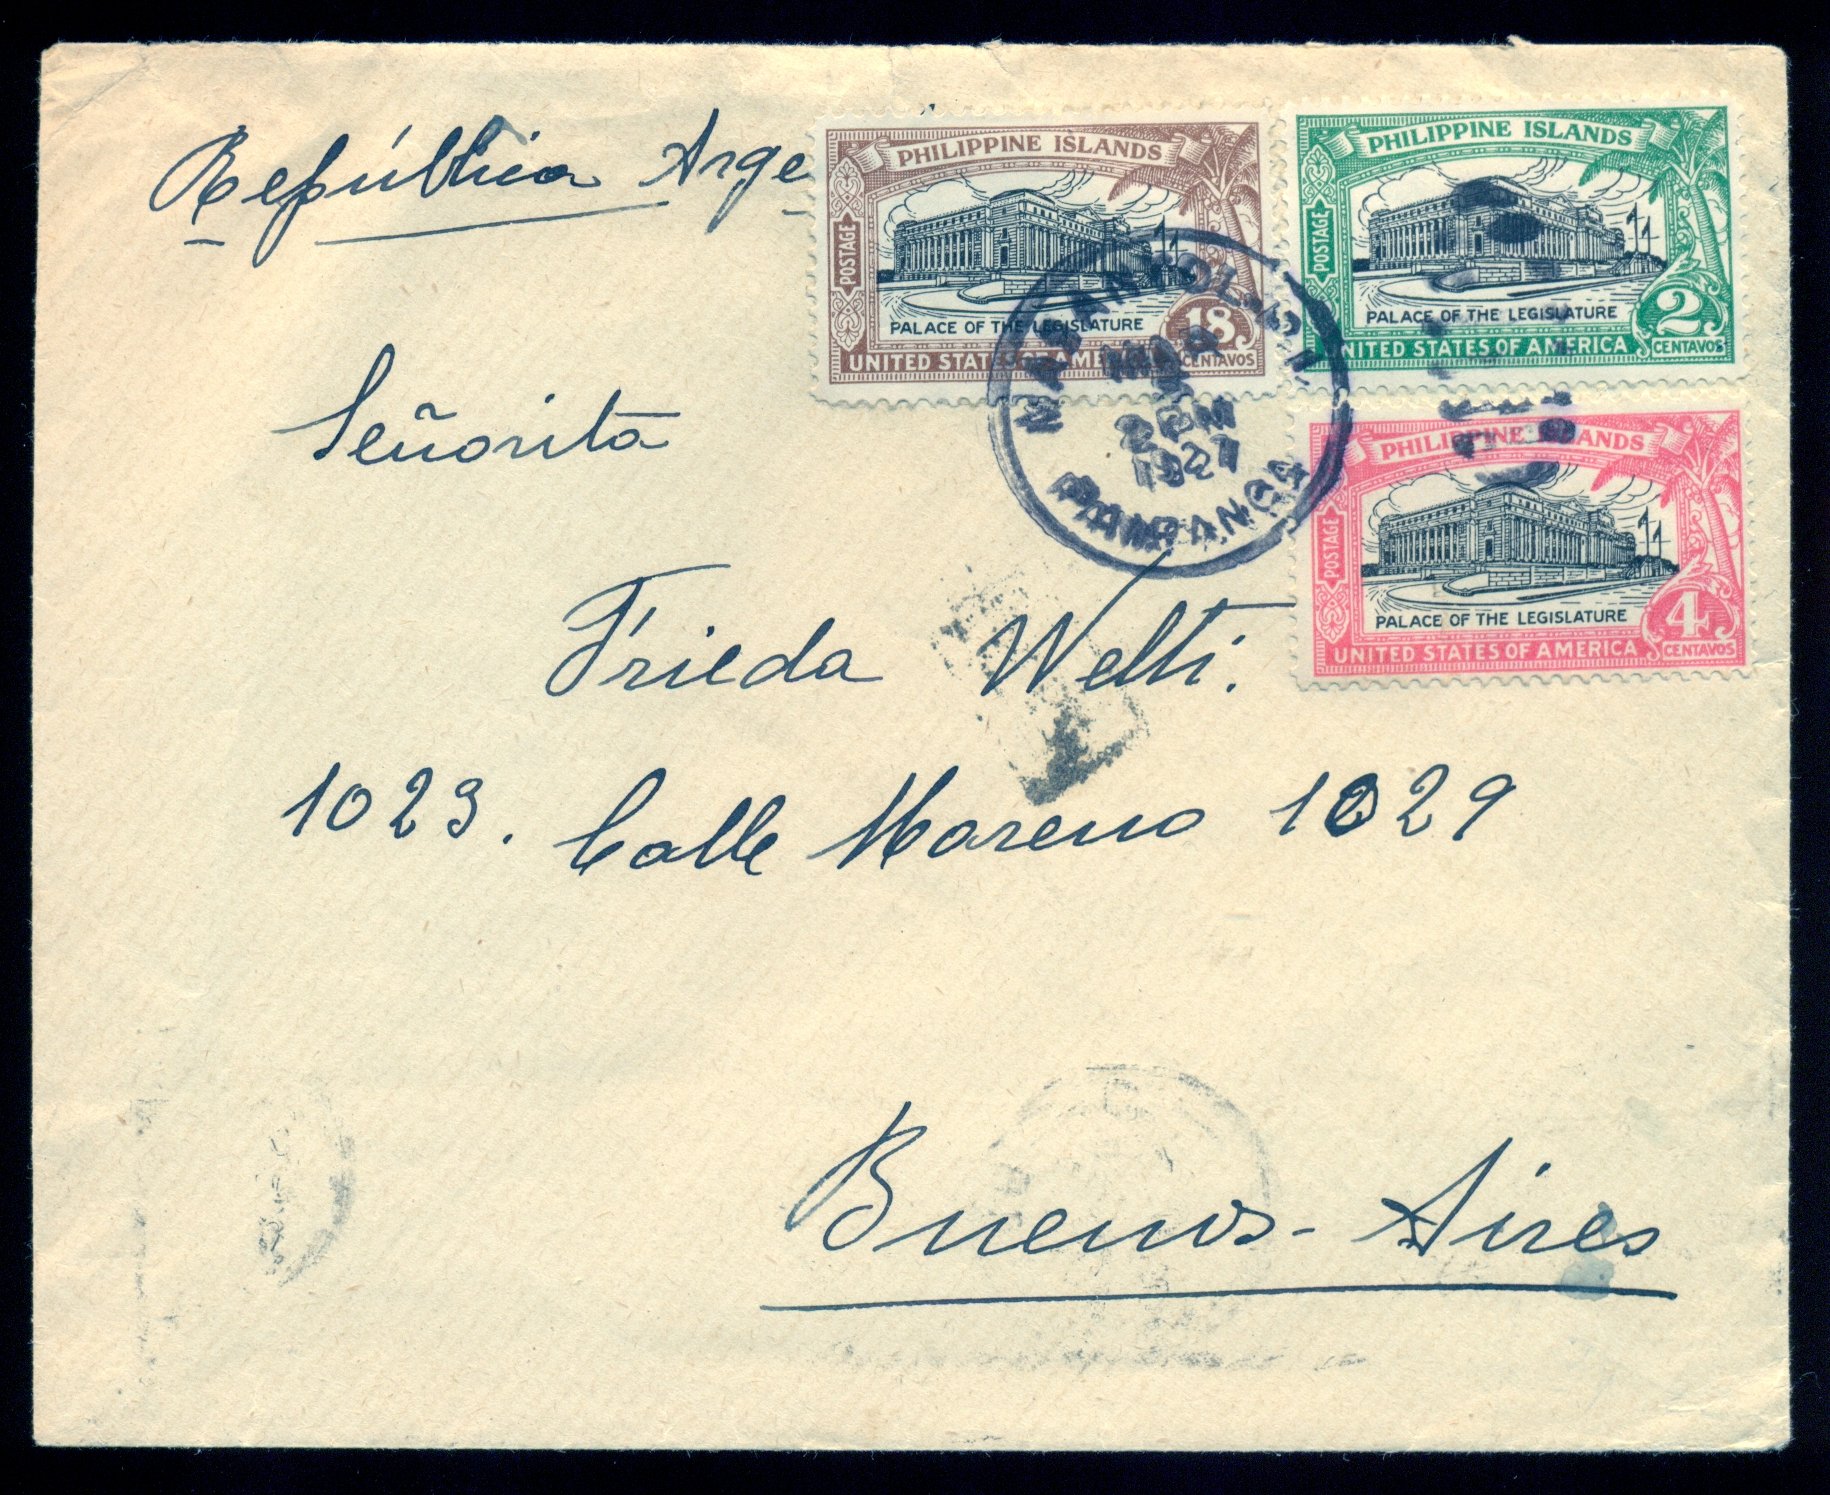 República Arge
PHILIPPINE ISLANDS
POSTAGE
PALACE OF THE LEGISLATURE
18
CENTAVOS
UNITED STATES OF AMERICA
PHILIPPINE ISLANDS
POSTAGE
PALACE OF THE LEGISLATURE
2
CENTAVOS
UNITED STATES OF AMERICA
PHILIPPINE ISLANDS
POSTAGE
PALACE OF THE LEGISLATURE
4
CENTAVOS
UNITED STATES OF AMERICA
2 PM
1927
PAMPANGA
Señorita
Frieda Welti.
1023. Calle Moreno 1029
Buenos-Aires